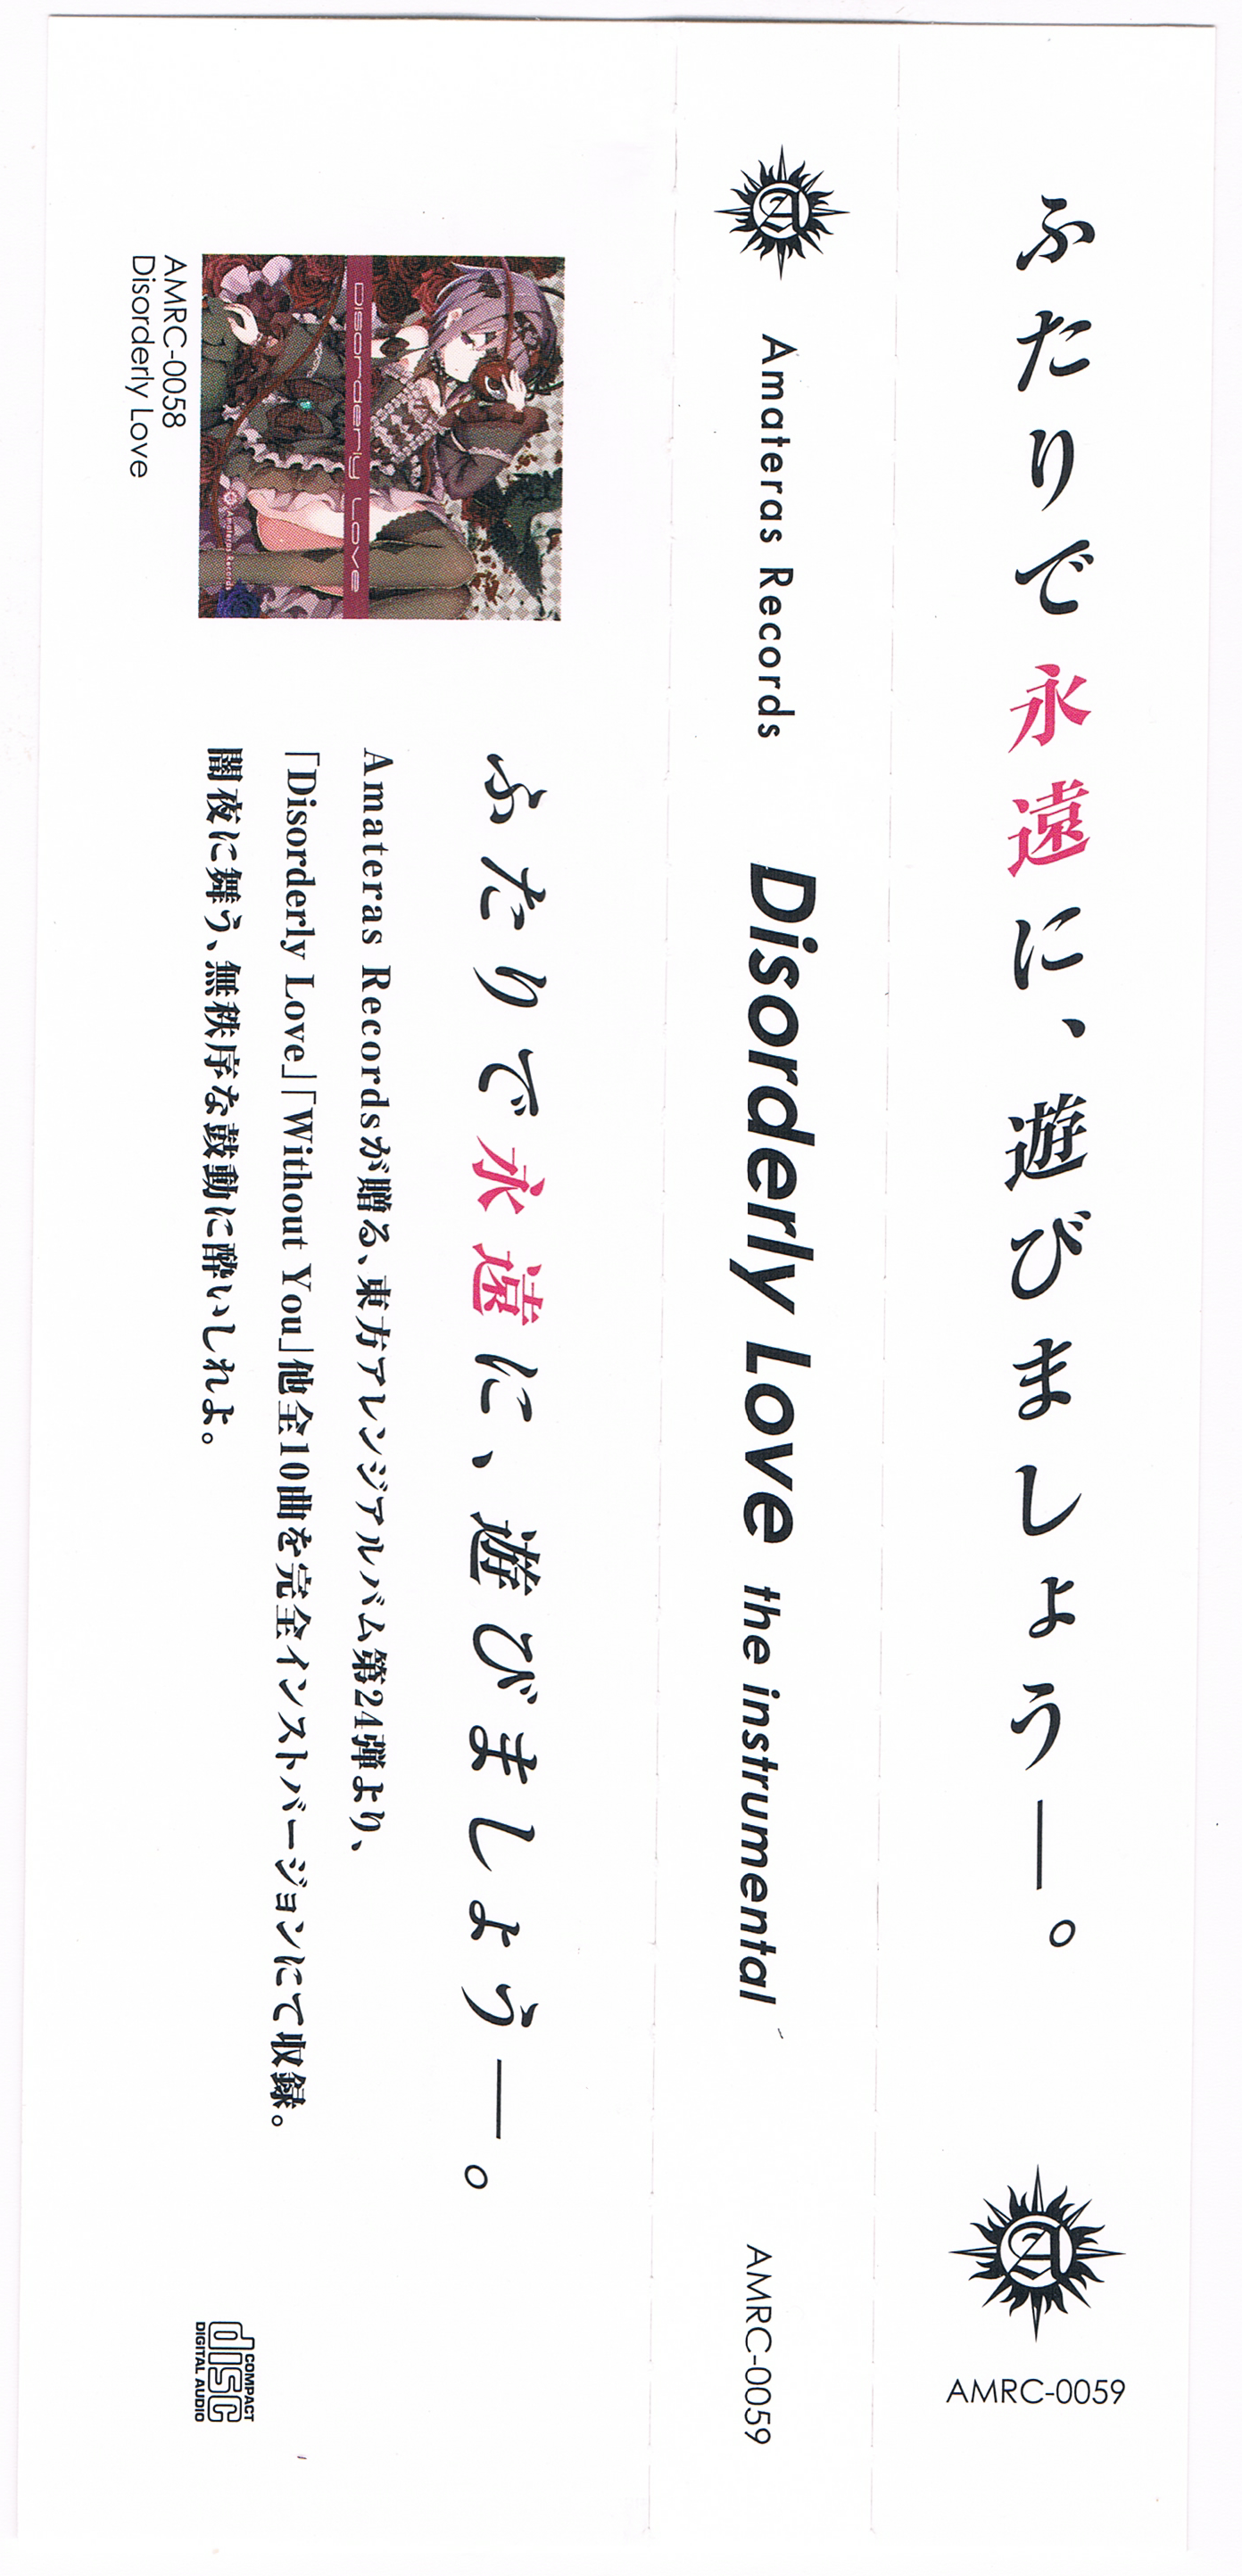 ふたりで永遠に、遊びましょう―。
AMRC-0059
Amateras Records
Disorderly Love the instrumental
AMRC-0059
ふたりで永遠に、遊びましょう―。
Amateras Recordsが贈る、東方アレンジアルバム第24弾より、
「Disorderly Love」「Without You」他全10曲を完全インストバージョンにて収録。
闇夜に舞う、無秩序な鼓動に酔いしれよ。
Disorderly Love
Amateras Records
AMRC-0058
Disorderly Love
COMPACT
disc
DIGITAL AUDIO